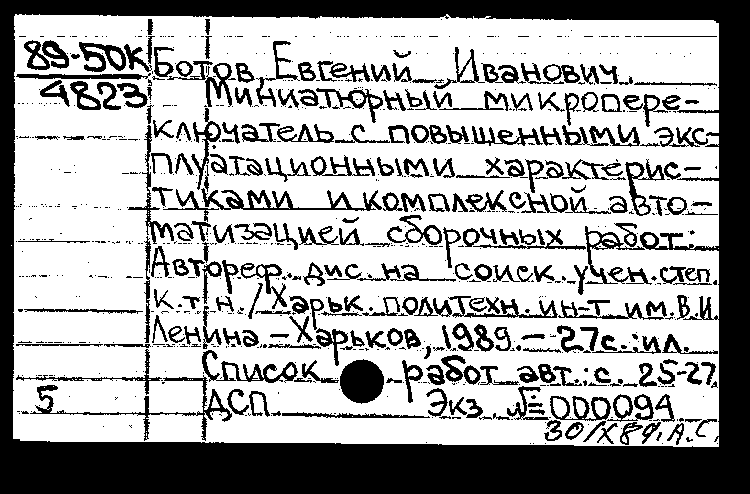 89-50К Ботов, Евгений Иванович.
4823 Миниатюрный микропере-
ключатель с повышенными экс-
плуатационными характерис-
тиками и комплексной авто-
матизацией сборочных работ:
Автореф. дис. на соиск. учен. степ.
к.т.н. / Харьк. политехн. ин-т им. В.И.
Ленина - Харьков, 1989. - 27с.: ил.
Список работ авт.: с. 25-27.
5 ДСП Экз. № 000094
30/X89. А.С.